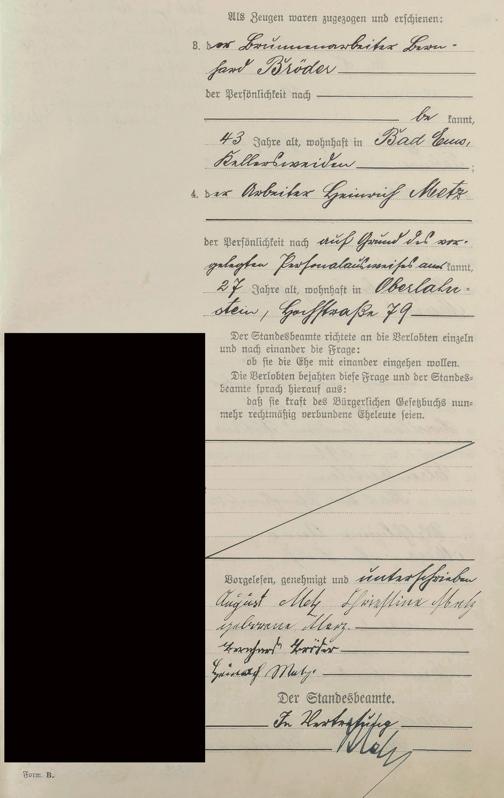 Als Zeugen waren zugezogen und erschienen:
3. der Brunnenarbeiter Bern-
hard Bröder
der Persönlichkeit nach
be kannt,
43 Jahre alt, wohnhaft in Bad Ems,
Kellersweiden ;
4. der Arbeiter Heinrich Metz
der Persönlichkeit nach auf Grund des vor-
gelegten Personalausweises anerkannt,
27 Jahre alt, wohnhaft in Oberlahn-
stein, Hochstraße 79
Der Standesbeamte richtete an die Verlobten einzeln
und nach einander die Frage:
ob sie die Ehe mit einander eingehen wollen.
Die Verlobten bejahten diese Frage und der Standes-
beamte sprach hierauf aus:
daß sie kraft des Bürgerlichen Gesetzbuchs nun-
mehr rechtmäßig verbundene Eheleute seien.
Vorgelesen, genehmigt und unterschrieben
August Metz Christine Metz
geborene
Bernhard Bröder
Heinrich Metz.
Der Standesbeamte.
In Vertretung
Form. B.